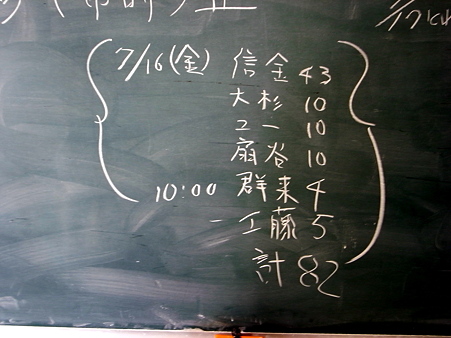 7/16(金) 信金 43
大杉 10
ユー 10
扇谷 10
10:00 群来 4
工藤 5
計 82